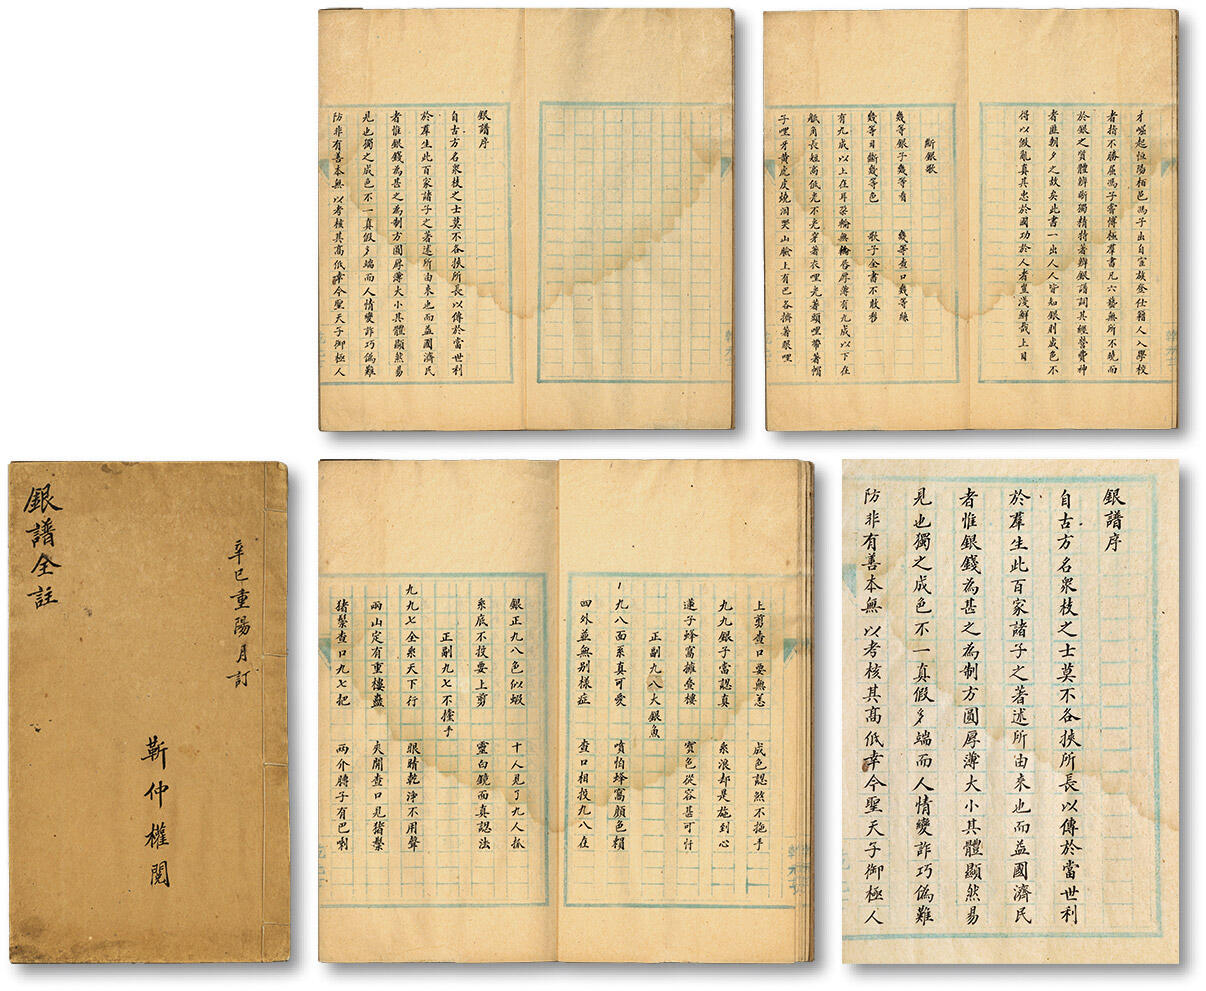 銀譜全註
辛巳重陽月訂
靳仲權閱
銀譜序
自古方名衆技之士莫不各挾所長以傳於當世利
於羣生此百家諸子之著述所由來也而益國濟民
者惟銀錢為甚之為制方圓厚薄大小其體顯然易
見也獨之成色不一真假多端而人情變詐巧偽難
防非有善本無以考核其高低幸今聖天子御極人
才崛起恒陽栢邑馮子出自宦族登仕籍人入學校
者指不勝屈馮子
博極羣書凡六藝無所不曉而
於銀之質體辨斷獨精特著辨銀譜詞其經營費神
者匪朝夕之故矣此書一出人人皆知銀則成色不
得以假亂真其忠於國功於人者豈淺鮮哉上目
斷銀歌
幾等銀子幾等看 幾等查口幾等絲
幾等目斷幾等色 歌子全書不敢移
有九成以上在耳朶輪無輪唇厚薄有九成以下在
觝角長短高低光不光穿著衣哩光著頭哩帶著帽
子哩牙黄虎皮燒泪哭山臉上有巴各擠著眼哩
上剪查口要無恙 成色認然不拖手
九九銀子當認真 系浪却是施到心
蓮子蜂窩擁叠樓 寳色從容甚可忖
正剮九八大銀魚
九八面系真可愛 噴怕蜂窩顔色賴
四外並無别樣症 查口相投九八在
銀正九八色似蝦 十人見了九人抓
系底不投要上剪 靈白鏡面真認法
正剮九七不撞手
九九七全系天下行 眼睛乾淨不用聲
兩山定有重樓叠 夾開查口見猪鬃
猪鬃查口九七把 兩介膀子有巴喇
銀譜序
自古方名衆技之士莫不各挾所長以傳於當世利
於羣生此百家諸子之著述所由來也而益國濟民
者惟銀錢為甚之為制方圓厚薄大小其體顯然易
見也獨之成色不一真假多端而人情變詐巧偽難
防非有善本無以考核其高低幸今聖天子御極人